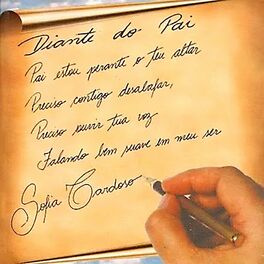 Diante do Pai
Pai estou perante o teu altar
Preciso contigo desabafar,
Preciso ouvir tua voz
Falando bem suave em meu ser
Sofia Cardoso